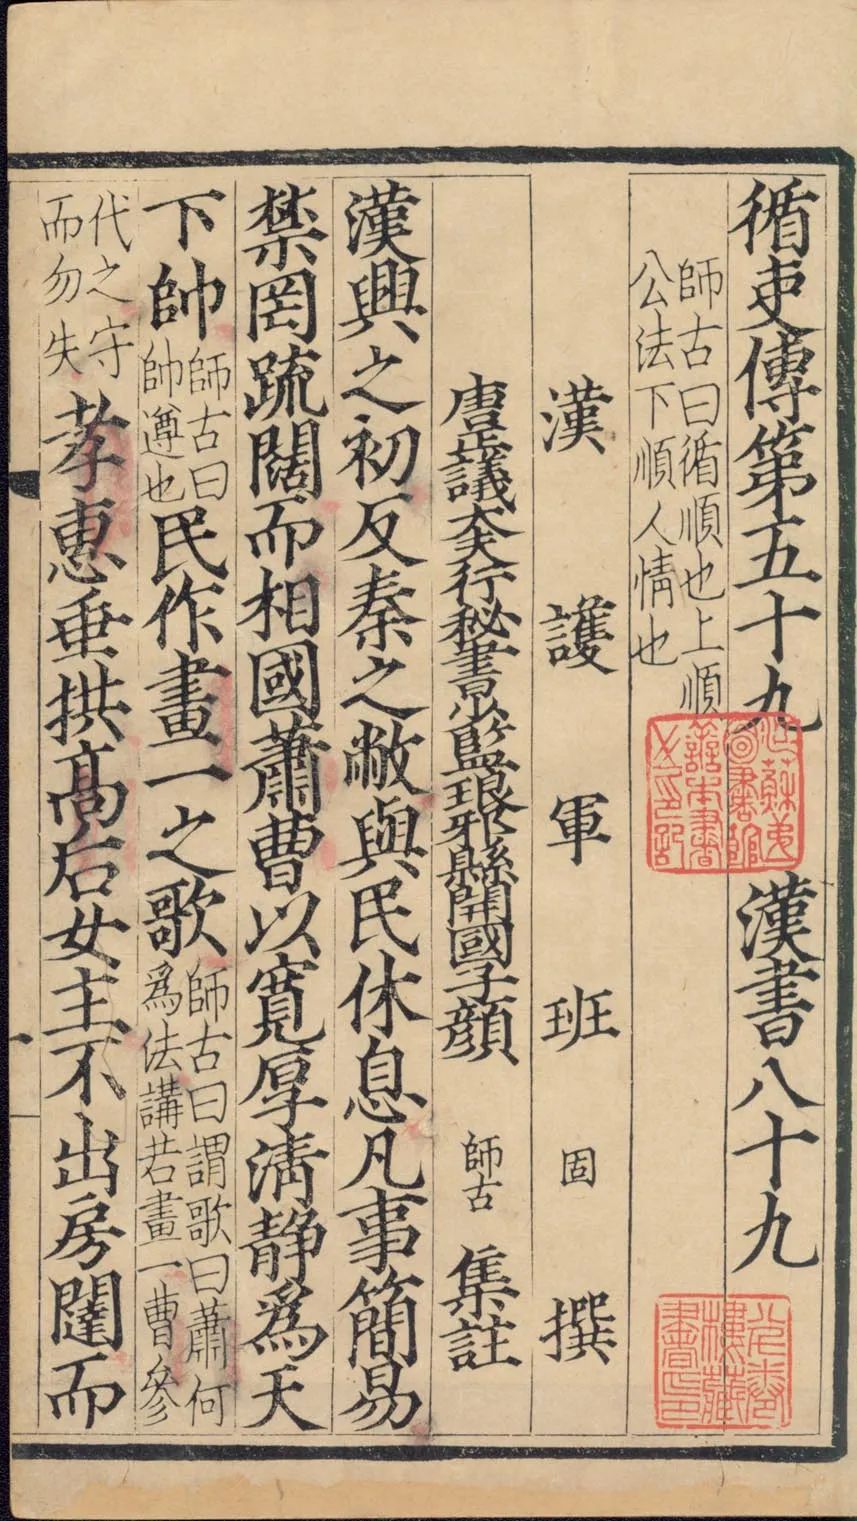 循吏傳第五十九 漢書八十九
師古曰循順也上順
公法下順人情也
漢護軍班固撰
唐正議大夫行秘書少監琅邪縣開國子顔師古集註
漢興之初反秦之敝與民休息凡事簡易
禁罔疏闊而相國蕭曹以寬厚清静爲天
下帥
師古曰
帥遵也
民作畫一之歌
師古曰謂歌曰蕭何
爲法講若畫一曹參
代之守
而勿失
孝惠垂拱髙后女主不出房闥而
江蘇第
圖書館
善本書
之印記